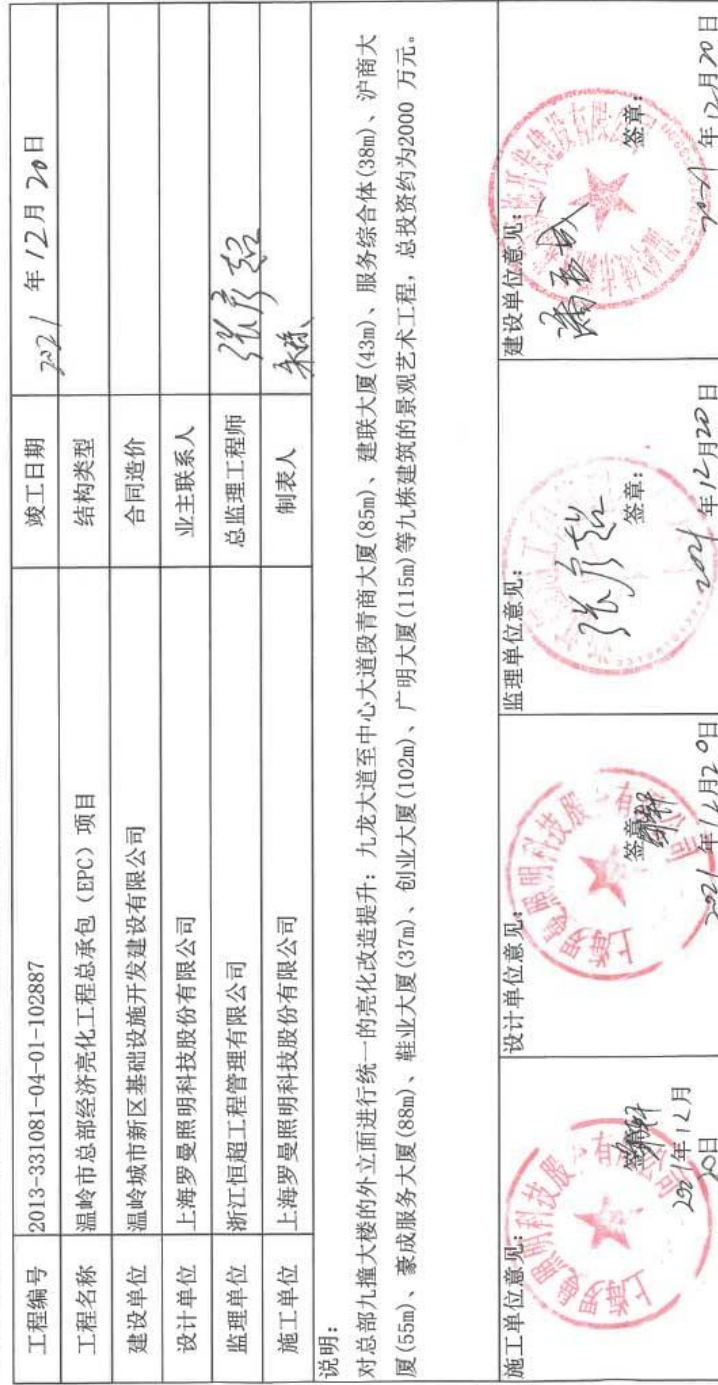 工程编号 2013-331081-04-01-102887 竣工日期 2021年12月20日
工程名称 温岭市总部经济亮化工程总承包（EPC）项目 结构类型
建设单位 温岭城市新区基础设施开发建设有限公司 合同造价
设计单位 上海罗曼照明科技股份有限公司 业主联系人
监理单位 浙江恒超工程管理有限公司 总监理工程师 张彦超
施工单位 上海罗曼照明科技股份有限公司 制表人
说明：
对总部九撞大楼的外立面进行统一的亮化改造提升：九龙大道至中心大道段青商大厦(85m)、建联大厦(43m)、服务综合体(38m)、沪商大
厦(55m)、豪成服务大厦(88m)、鞋业大厦(37m)、创业大厦(102m)、广明大厦(115m)等九栋建筑的景观艺术工程，总投资约为2000 万元。
施工单位意见： 设计单位意见： 监理单位意见： 建设单位意见：
上海罗曼照明科技股份有限公司 上海罗曼照明科技股份有限公司 张彦超
签章： 签章： 签章：
2021年12月20日 2021年12月20日 2021年12月20日 2021年12月20日